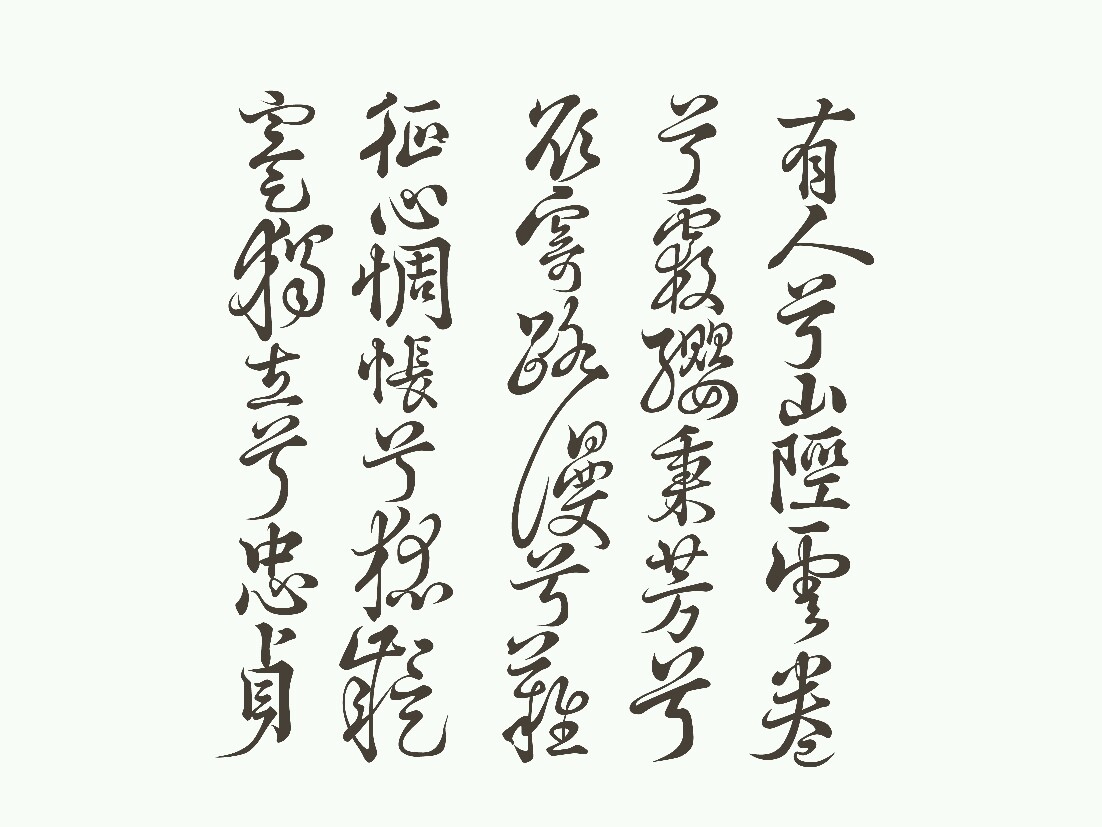 有人兮山陘雲卷
兮霞纓秉芳兮
欲寄路漫兮難
征心惆悵兮狐疑
蹇獨立兮忠貞